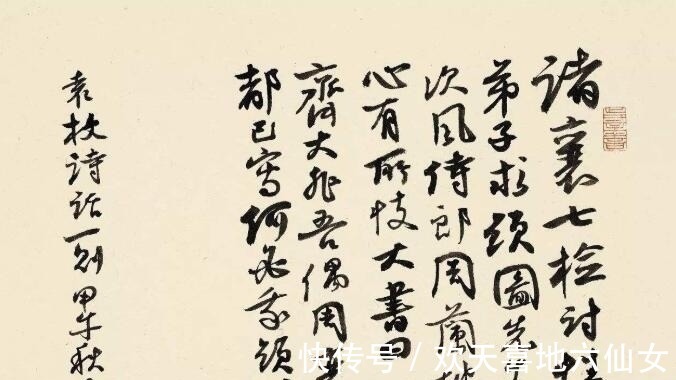 诸襄七检讨
弟子求题图先
次风侍郎周兰
心有所忮大书曰
齐大非吾偶周
都已写何必我题
袁枚诗话一则甲午秋
快传号/欢天喜地六仙女